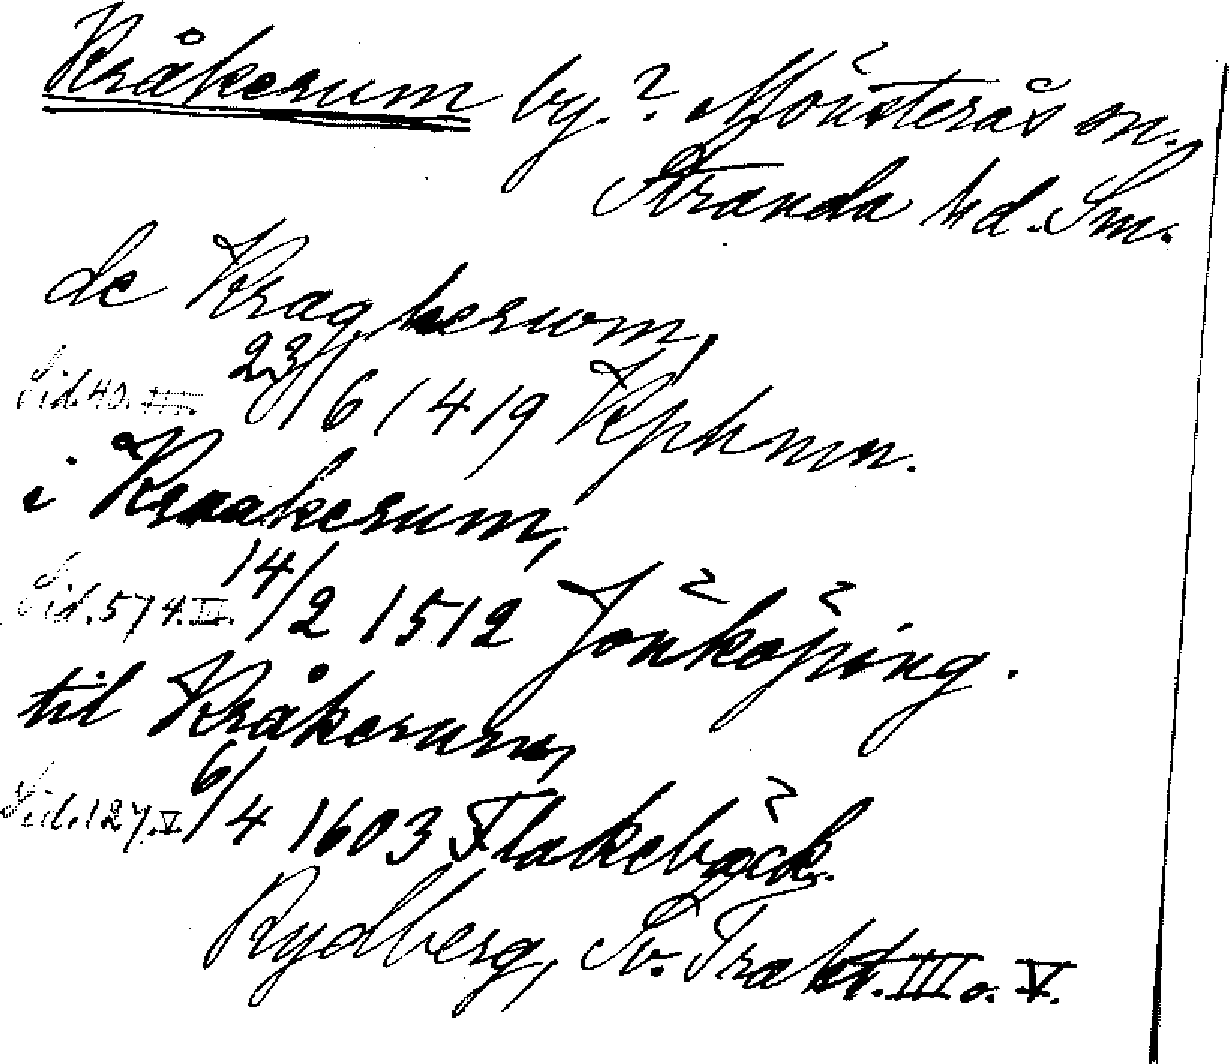 Kråkerum by.? Mönsterås sn.,
Stranda hd. Sm.
de Kragkerwm,
Sid. 40. III. 23/6 1419 Kphmn.
i Kraakerum,
Sid. 574. III. 14/2 1512 Jönköping.
til Kråkerum,
Sid. 127. V. 6/4 1603 Flakebäck.
Rydberg, Sv. Trakt. III o. V.